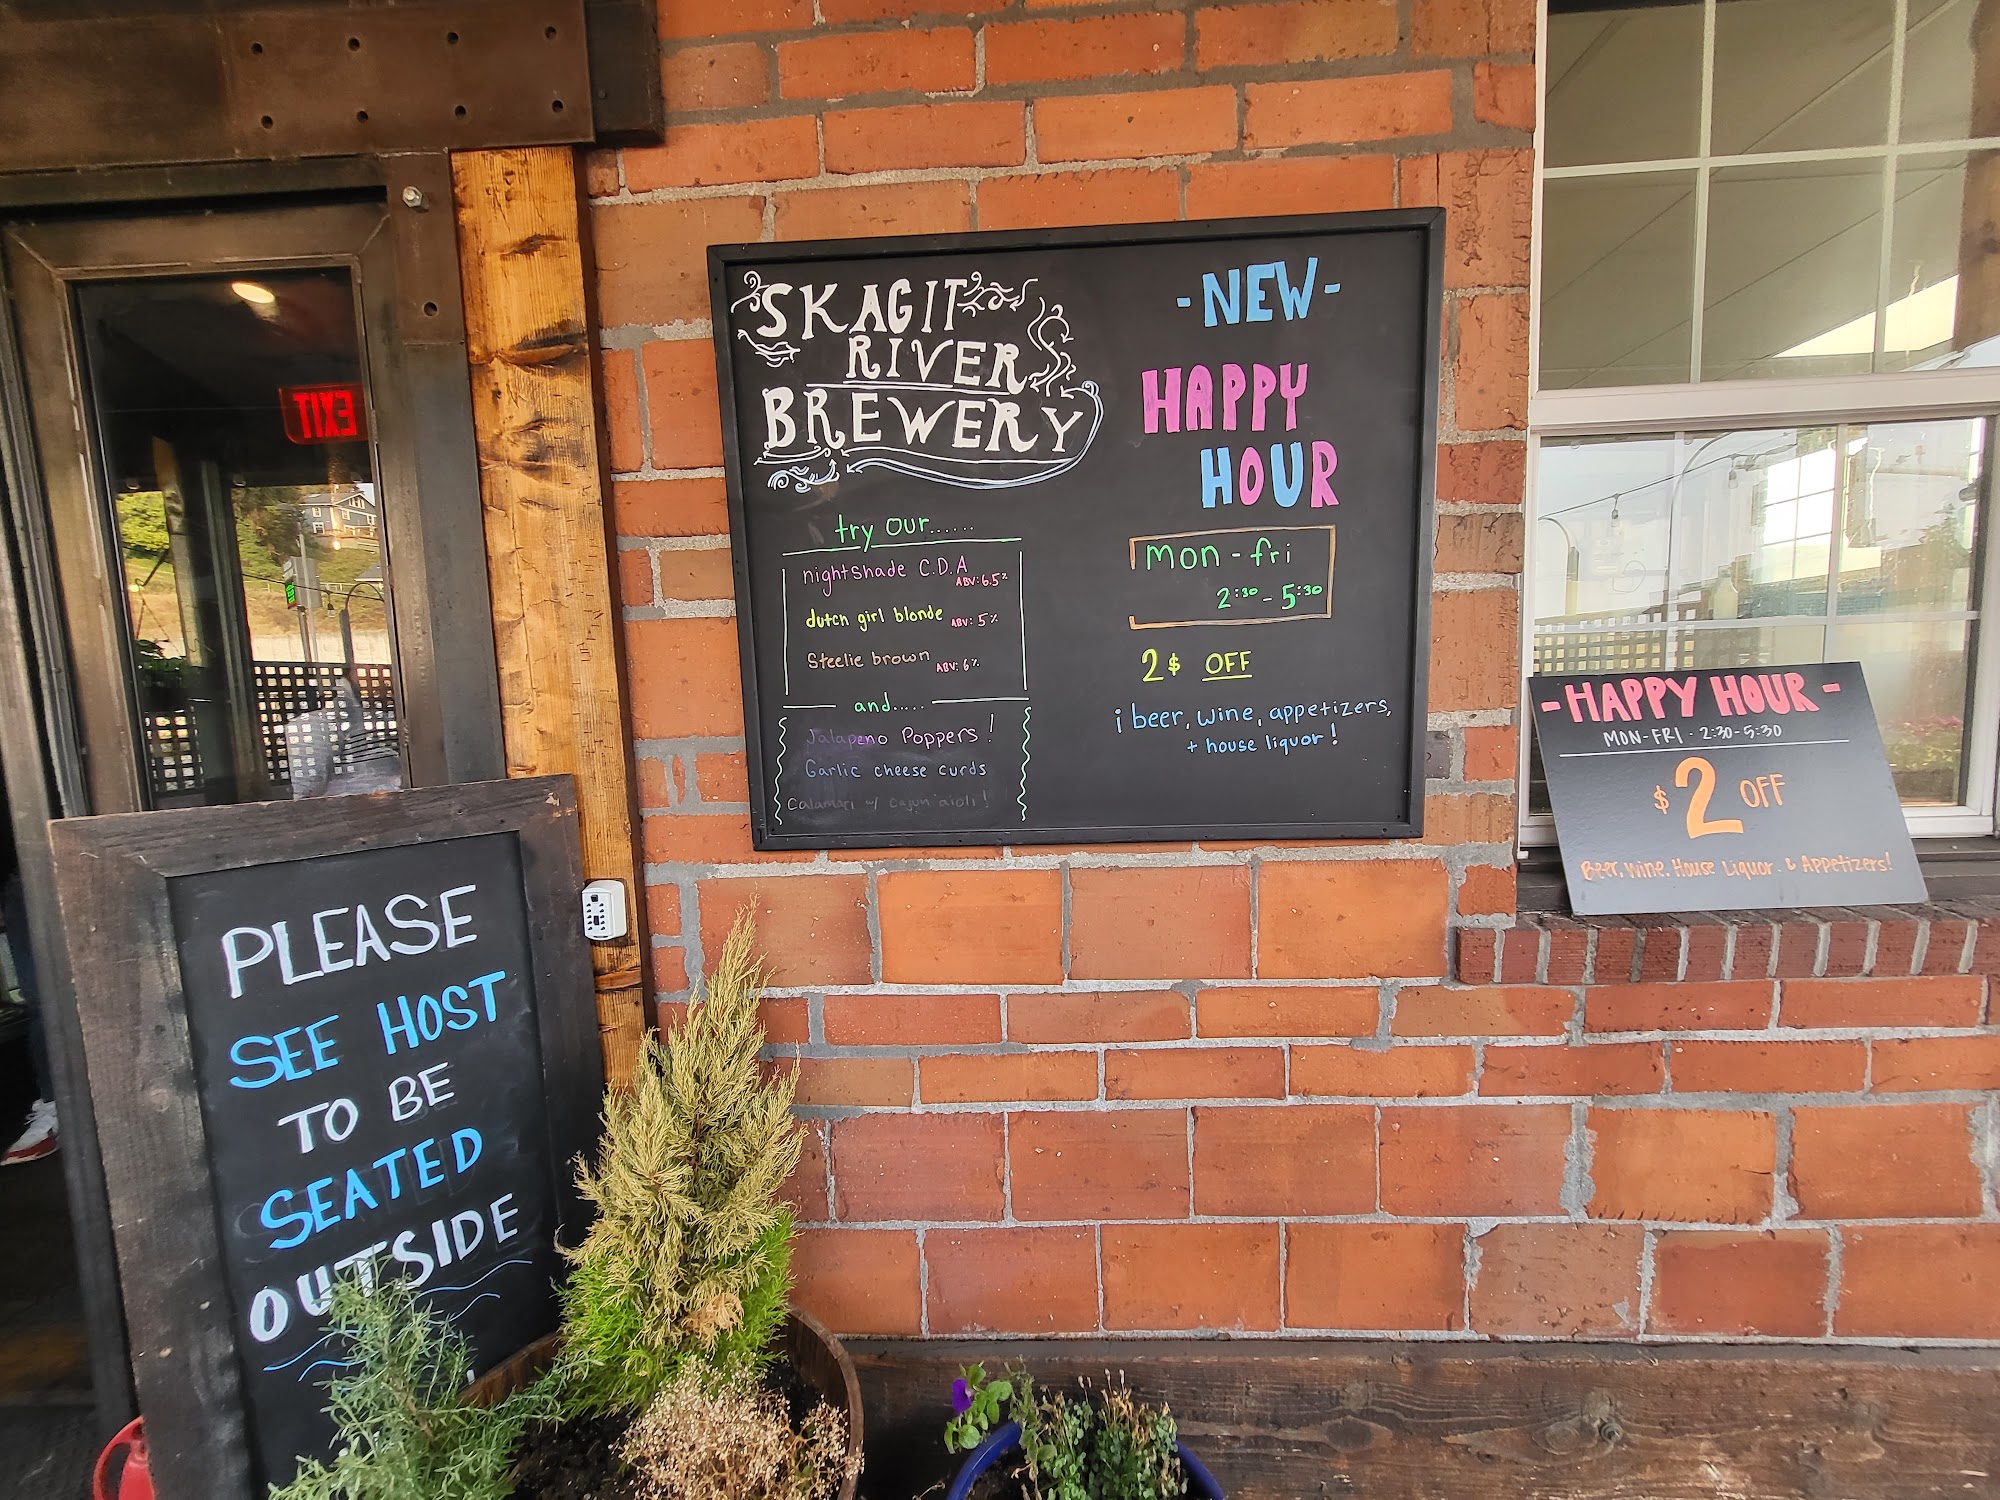 EXIT
PLEASE
SEE HOST
TO BE
SEATED
OUTSIDE
SKAGIT
RIVER
BREWERY
try our......
nightshade C.D.A
ABV: 6.5%
dutch girl blonde ABV: 5%
Steelie brown ABV: 6%
and.....
Jalapeno Poppers!
Garlic cheese curds
Calamari w/ cajun aioli!
-NEW-
HAPPY
HOUR
mon - fri
2:30 - 5:30
2$ OFF
¡ beer, wine, appetizers,
+ house liquor!
- HAPPY HOUR -
MON-FRI · 2:30-5:30
$2 OFF
Beer, Wine, House Liquor & Appetizers!